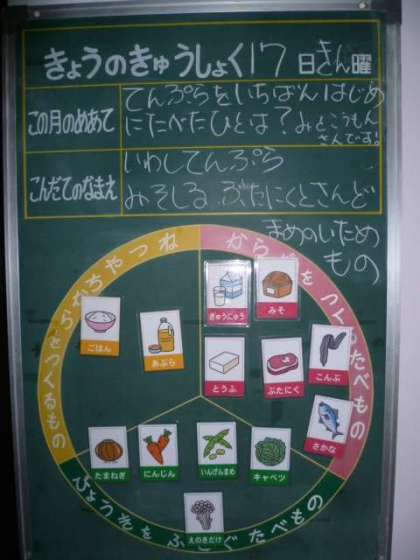 きょうのきゅうしょく17日きん曜
この月のめあて
てんぷらをいちばんはじめ
にたべたひとは?みとこうもん
さんです!
こんだてのなまえ
いわしてんぷら
みそしる ぶたにくとさんど
まめのいため
もの
ねつやちからをつくるもの
からだをつくるたべもの
ぎゅうにゅう
みそ
ごはん
あぶら
とうふ
ぶたにく
こんぶ
さかな
たまねぎ
にんじん
いんげんまめ
キャベツ
えのきだけ
びょうきをふせぐたべもの